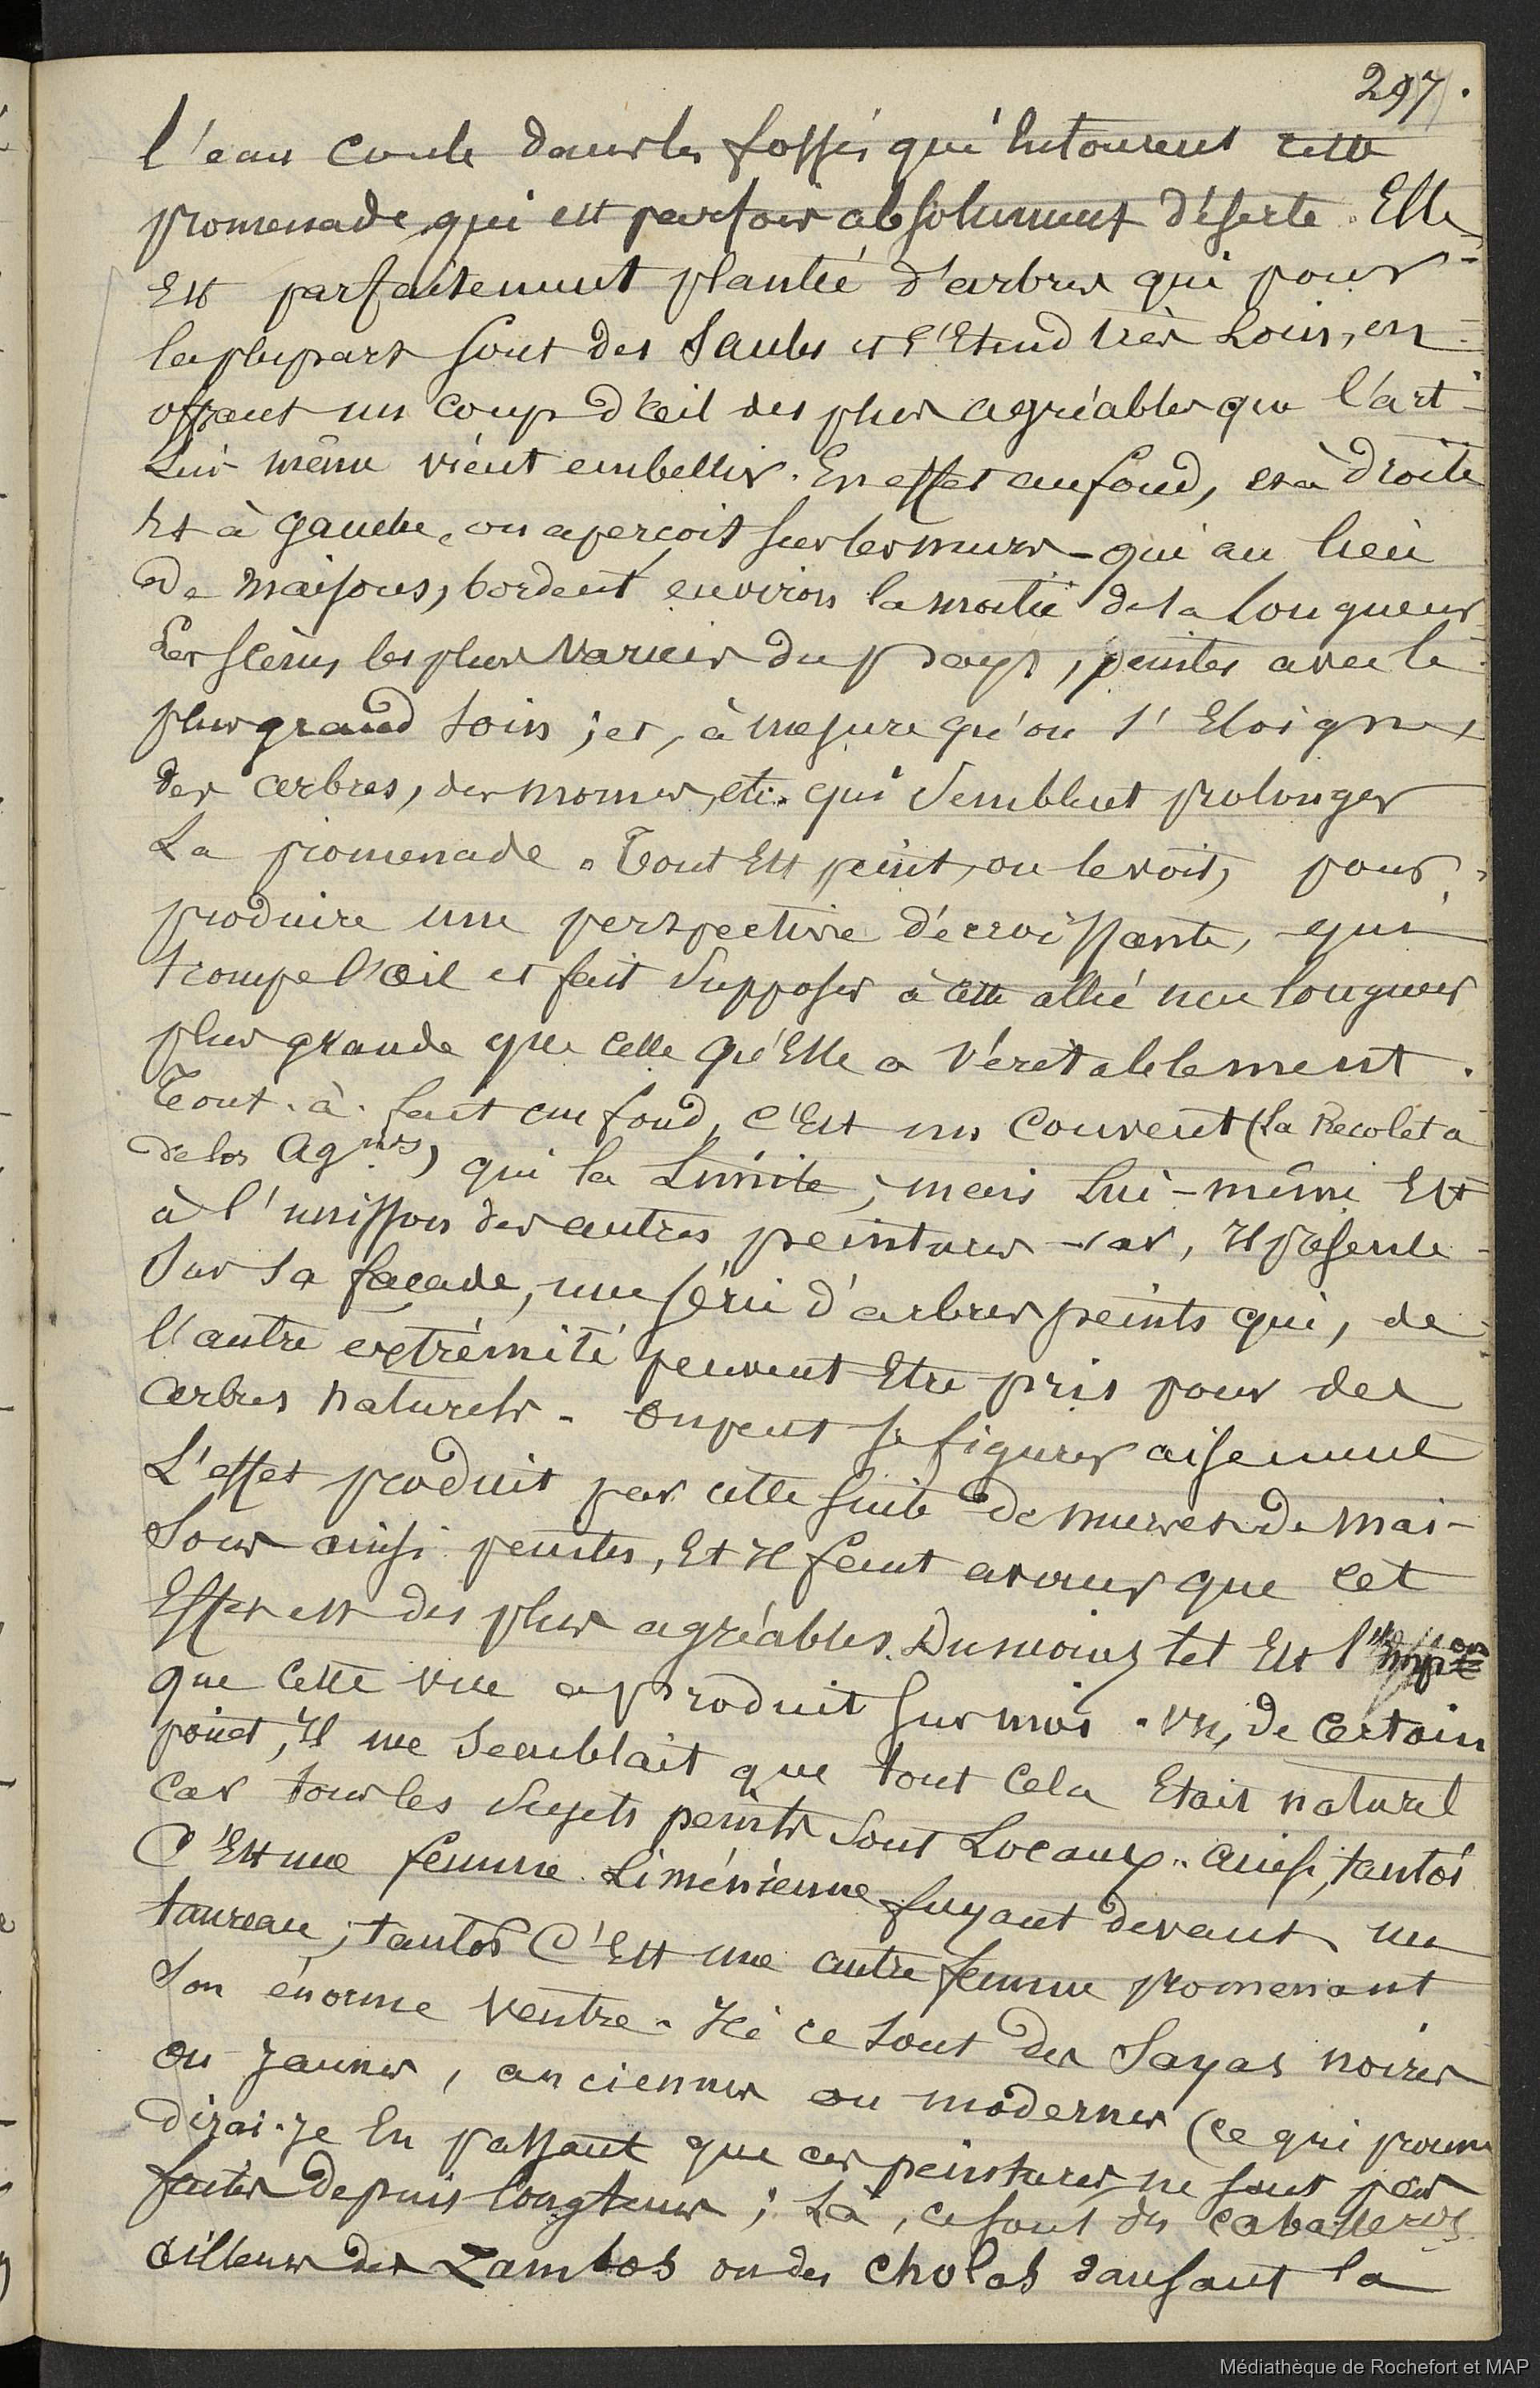 297.
l'eau coule dans les fossés qui entourent cette
promenade qui est parfois absolument déserte. Elle
Est parfaitement plantée d'arbres qui pour
la plupart sont des Saules et s'Etend très Loin, en
offrant un coup d'œil des plus agréables que l'art
Lui-même vient embellir. En effet au fond, et à droite
Et à Gauche, on aperçoit sur les murs - qui au lieu
de Maisons, bordent environ la moitié de la Longueur
Les scènes les plus variées du pays, peintes avec le
plus grand soin ; et, à mesure qu'on s'Eloigne,
des arbres, des mornes, etc. qui semblent prolonger
La promenade. Tout Est peint, on le voit, pour
produire une perspective décroissante, qui
trompe l'œil et fait supposer à cette allée une longueur
plus grande que celle qu'Elle a véritablement.
Tout-à-fait au fond, c'Est un Couvent (La Recoleta
de los Agnos) qui la Limite ; mais Lui-même Est
à l'unisson des autres peintures - car, Il présente
Sur sa façade, une série d'arbres peints qui, de
l'autre extrémité peuvent Etre pris pour des
arbres naturels. On peut se figurer aisement
L'effet produit par cette suite de murs et de Mai-
sons ainsi peintes, Et Il faut avouer que cet
Effet est des plus agréables. Du moins tel Est l'Impon
que cette vue a produit sur moi. Vu, de Certain
point, Il me semblait que tout cela Etait naturel
Car tous les sujets peints sont Locaux. Ainsi, tantôt
C'Est une femme Liménienne fuyant devant un
taureau ; tantôt C'Est une autre femme promenant
Son énorme ventre. Ici ce sont des Sayas noires
ou jaunes, anciennes ou modernes (ce qui prouve
dirai-je En passant que ces peintures ne sont pas
faites depuis longtems ; Là, ce sont des caballeros
ailleurs des Zambos ou des cholas dansant la
Médiathèque de Rochefort et MAP